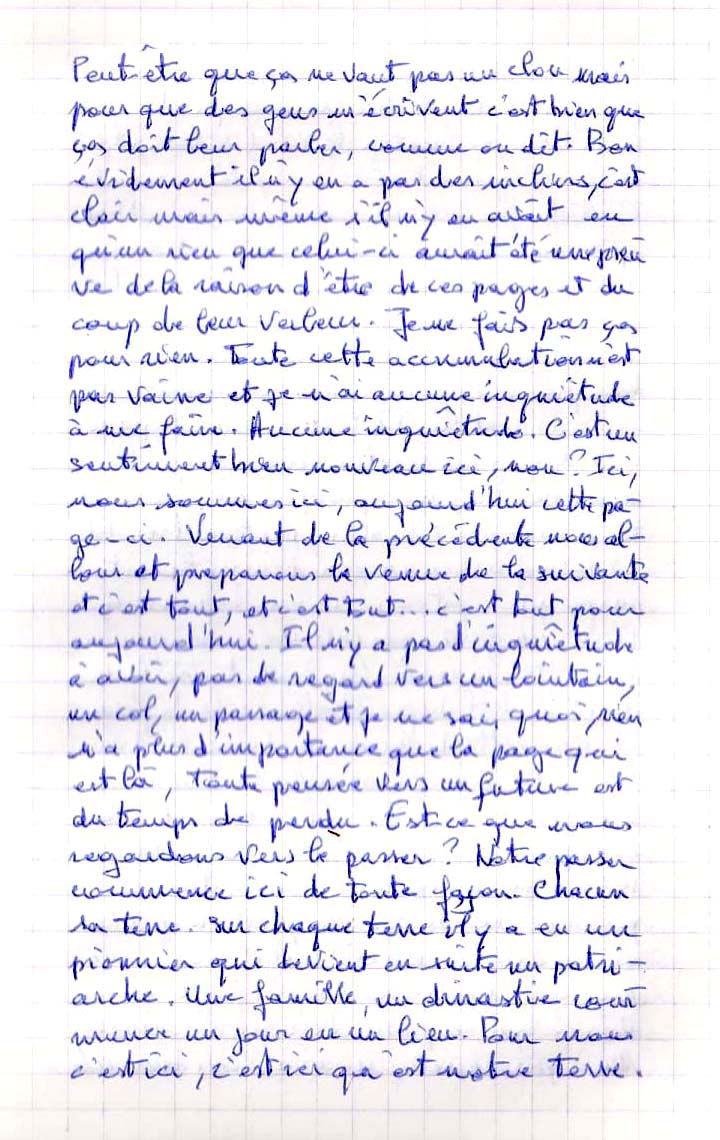 Peut-être que ça ne vaut pas un clou mais
pour que des gens m'écrivent c'est bien que
ças doit leur parler, comme on dit. Bon
évidement il n'y en a pas des milliers, c'est
clair mais même s'il n'y en avait eu
qu'un rien que celui-ci aurait été une preu
ve de la raison d'être de ces pages et du
coup de leur valeur. Je ne fais pas ças
pour rien. Toute cette accumulation n'est
pas vaine et je n'ai aucune inquiètude
à me faire. Aucune inquiètude. C'est un
sentiment bien nouveau ici, non? Ici,
nous sommes ici, aujourd'hui cette pa-
ge-ci. Venant de la précédente nous al-
lons et préparons la venue de la suivante
et c'est tout, et c'est tout... c'est tout pour
aujourd'hui. Il n'y a pas d'inquiètude
à avoir, pas de regard vers un lointain,
un col, un passage et je ne sais quoi, rien
n'a plus d'importance que la page qui
est là, toute pensée vers un future est
du temps de perdu. Est-ce que nous
regardons vers le passer? Notre passer
commence ici de toute façon. Chacun
sa terre. Sur chaque terre il y a eu un
pionnier qui devient en suite un patri-
arche. Une famille, un dinastie com
mence un jour en un lieu. Pour nous
c'est ici, c'est ici qu'est notre terre.